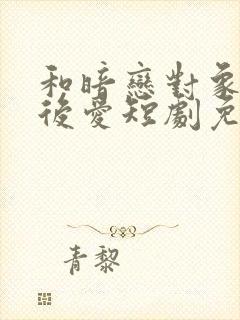 和暗戀對象
後愛短劇免
青黎